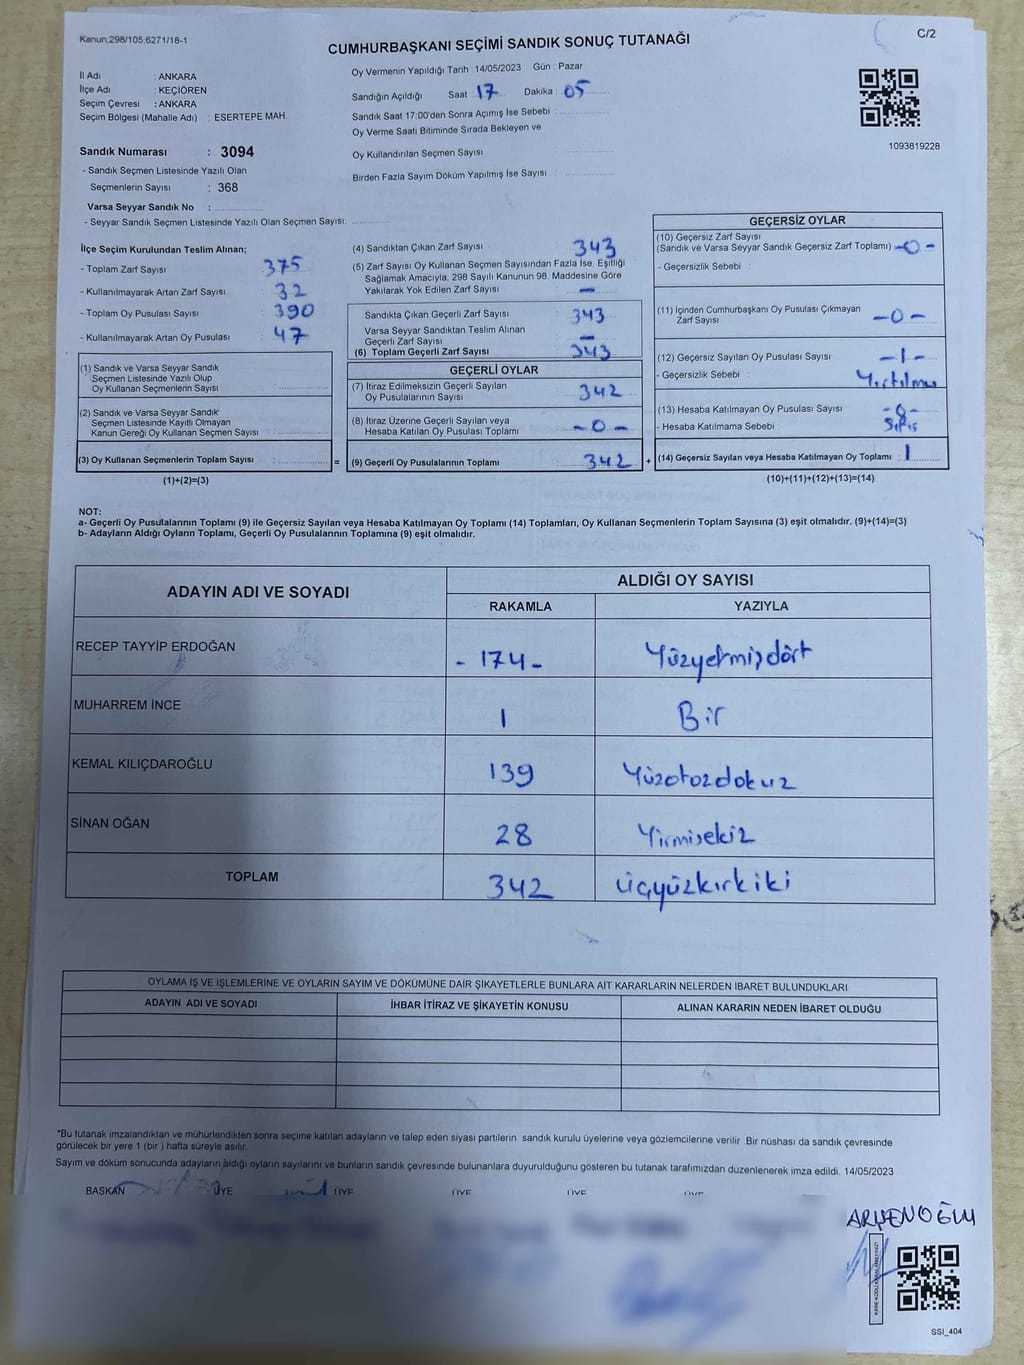 Kanun.298/105:6271/18-1
C/2
CUMHURBAŞKANI SEÇİMİ SANDIK SONUÇ TUTANAĞI
İl Adı : ANKARA
İlçe Adı : KEÇİÖREN
Seçim Çevresi : ANKARA
Seçim Bölgesi (Mahalle Adı) : ESERTEPE MAH.
Sandık Numarası : 3094
- Sandık Seçmen Listesinde Yazılı Olan
Seçmenlerin Sayısı : 368
Varsa Seyyar Sandık No :
- Seyyar Sandık Seçmen Listesinde Yazılı Olan Seçmen Sayısı:
Oy Vermenin Yapıldığı Tarih : 14/05/2023 Gün : Pazar
Sandığın Açıldığı Saat : 17 Dakika : 05
Sandık Saat 17:00'den Sonra Açımış İse Sebebi :
Oy Verme Saati Bitiminde Sırada Bekleyen ve
Oy Kullandırılan Seçmen Sayısı :
Birden Fazla Sayım Döküm Yapılmış İse Sayısı :
1093819228
İlçe Seçim Kurulundan Teslim Alınan;
- Toplam Zarf Sayısı : 375
- Kullanılmayarak Artan Zarf Sayısı : 32
- Toplam Oy Pusulası Sayısı : 390
- Kullanılmayarak Artan Oy Pusulası : 47
(1) Sandık ve Varsa Seyyar Sandık
Seçmen Listesinde Yazılı Olup
Oy Kullanan Seçmenlerin Sayısı :
(2) Sandık ve Varsa Seyyar Sandık
Seçmen Listesinde Kayıtlı Olmayan
Kanun Gereği Oy Kullanan Seçmen Sayısı :
(3) Oy Kullanan Seçmenlerin Toplam Sayısı : =
(1)+(2)=(3)
(4) Sandıktan Çıkan Zarf Sayısı : 343
(5) Zarf Sayısı Oy Kullanan Seçmen Sayısından Fazla İse, Eşitliği
Sağlamak Amacıyla; 298 Sayılı Kanunun 98. Maddesine Göre
Yakılarak Yok Edilen Zarf Sayısı : -
Sandıkta Çıkan Geçerli Zarf Sayısı : 343
Varsa Seyyar Sandıktan Teslim Alınan
Geçerli Zarf Sayısı : -
(6) Toplam Geçerli Zarf Sayısı : 343
GEÇERLİ OYLAR
(7) İtiraz Edilmeksizin Geçerli Sayılan
Oy Pusulalarının Sayısı : 342
(8) İtiraz Üzerine Geçerli Sayılan veya
Hesaba Katılan Oy Pusulası Toplamı : -0-
(9) Geçerli Oy Pusulalarının Toplamı : 342 +
GEÇERSİZ OYLAR
(10) Geçersiz Zarf Sayısı
(Sandık ve Varsa Seyyar Sandık Geçersiz Zarf Toplamı) : -0-
- Geçersizlik Sebebi :
(11) İçinden Cumhurbaşkanı Oy Pusulası Çıkmayan
Zarf Sayısı : -0-
(12) Geçersiz Sayılan Oy Pusulası Sayısı : -1-
- Geçersizlik Sebebi : Yırtılmış
(13) Hesaba Katılmayan Oy Pusulası Sayısı : -0-
- Hesaba Katılmama Sebebi :
(14) Geçersiz Sayılan veya Hesaba Katılmayan Oy Toplamı : 1
(10)+(11)+(12)+(13)=(14)
NOT:
a- Geçerli Oy Pusulalarının Toplamı (9) ile Geçersiz Sayılan veya Hesaba Katılmayan Oy Toplamı (14) Toplamları, Oy Kullanan Seçmenlerin Toplam Sayısına (3) eşit olmalıdır. (9)+(14)=(3)
b- Adayların Aldığı Oyların Toplamı, Geçerli Oy Pusulalarının Toplamına (9) eşit olmalıdır.
ADAYIN ADI VE SOYADI
ALDIĞI OY SAYISI
RAKAMLA YAZIYLA
RECEP TAYYİP ERDOĞAN -174- Yüzyetmişdört
MUHARREM İNCE 1 Bir
KEMAL KILIÇDAROĞLU 139 Yüzotozdokuz
SİNAN OĞAN 28 Yirmisekiz
TOPLAM 342 üçyüzkırkiki
OYLAMA İŞ VE İŞLEMLERİNE VE OYLARIN SAYIM VE DÖKÜMÜNE DAİR ŞİKAYETLERLE BUNLARA AİT KARARLARIN NELERDEN İBARET BULUNDUKLARI
ADAYIN ADI VE SOYADI İHBAR İTİRAZ VE ŞİKAYETİN KONUSU ALINAN KARARIN NEDEN İBARET OLDUĞU
*Bu tutanak imzalandıktan ve mühürlendikten sonra seçime katılan adayların ve talep eden siyasi partilerin sandık kurulu üyelerine veya gözlemcilerine verilir. Bir nüshası da sandık çevresinde
görülecek bir yere 1 (bir ) hafta süreyle asılır.
Sayım ve döküm sonucunda adayların aldığı oyların sayılarını ve bunların sandık çevresinde bulunanlara duyurulduğunu gösteren bu tutanak tarafımızdan düzenlenerek imza edildi. 14/05/2023
BAŞKAN ÜYE ÜYE ÜYE ÜYE ÜYE
SSI_404